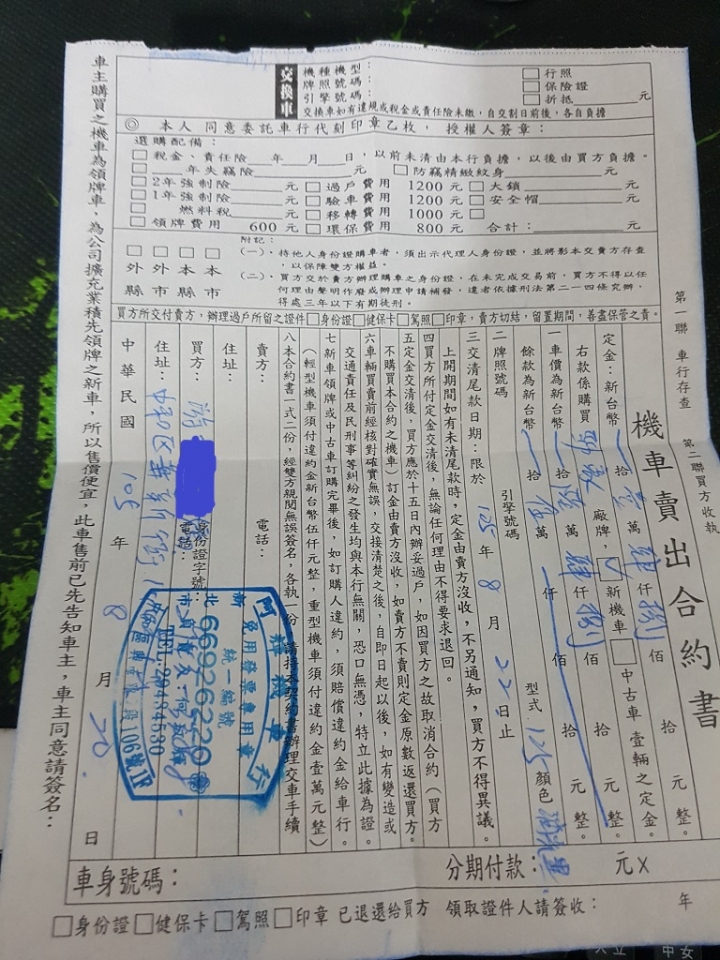 機車賣出合約書
第一聯 車行存查 第二聯買方收執
定金：新台幣 拾 萬 肆仟 捌佰 拾 元整。
右款係購買 廠牌，✓新機車 □中古車 壹輛之定金。
一車價為新台幣 拾 萬 肆仟 捌佰 拾 元整。
餘款為新台幣 拾 萬 仟 佰 拾 元整。
二牌照號碼 引擎號碼 型式 125 顏色
三交清尾款日期：限於 105 年 8 月 22 日止
上開期間如有未清尾款時，定金由賣方沒收，不另通知，買方不得異議。
四買方所付定金交清後，無論任何理由不得要求退回。
五定金交清後，買方應於十五日內辦妥過戶，如因買方之故取消合約（買方
不購買本合約之機車）訂金由賣方沒收，如賣方不賣則定金原數返還買方。
六車輛買賣前經核對確實無誤，交接清楚之後，自即日起以後，如有變造或
交通責任及民刑事等糾紛之發生均與本行無關，恐口無憑，特立此據為證。
七新車領牌或中古車訂購完畢後，如訂購人違約，須賠償違約金給車行。
（輕型機車須付違約金新台幣伍仟元整，重型機車須付違約金壹萬元整）
八本合約書一式二份，經雙方親閱無誤簽名，各執一份，請按本契約書辦理交車手續
賣方： 電話：
住址：
買方：游 身份證字號： 電話：
住址：中和區 新街
中華民國 105 年 8 月 20 日
車主購買之機車為領牌車，為公司擴充業積先領牌之新車，所以售價便宜，此車售前已先告知車主，車主同意請簽名：
交換車
機種機型：
牌照號碼：
引擎號碼：
□行照
□保險證
□折抵 元
交換車如有違規或稅金或責任險未繳，自交割日前後，各自負擔
◎ 本人 同意委託車行代刻印章乙枚，授權人簽章：
選購配備：
□稅金、責任險 年 月 日，以前未清由本行負擔，以後由買方負擔。
□ 年失竊險 元 □防竊精緻紋身 元
□2年強制險 元 □過戶費用 1200元 □大鎖 元
□1年強制險 元 □驗車費用 1200元 □安全帽 元
□ 燃料稅 元 □移轉費用 1000元 □
□領牌費用 600元 □環保費用 800元 合計： 元
□外縣 □外市 □本縣 □本市
附記：
（一）．持他人身份證購車者，須出示代理人身份證，並將影本交賣方存查
，以保障雙方權益。
（二）．買方交於賣方辦理購車之身份證，在未完成交易前，買方不得以任
何理由聲明作廢或辦理申請補發，違者依據刑法第二一四條究辦，
得處三年以下有期徒刑。
買方所交付賣方，辦理過戶所留之證件□身份證□健保卡□駕照□印章，賣方切結，留置期間，善盡保管之責。
車行
免用發票專用章
統一編號
66926220
新北市
負責人：
TEL:29434680
106號1F
車身號碼： 分期付款： 元 X
□身份證□健保卡□駕照□印章 已退還給買方 領取證件人請簽收： 年